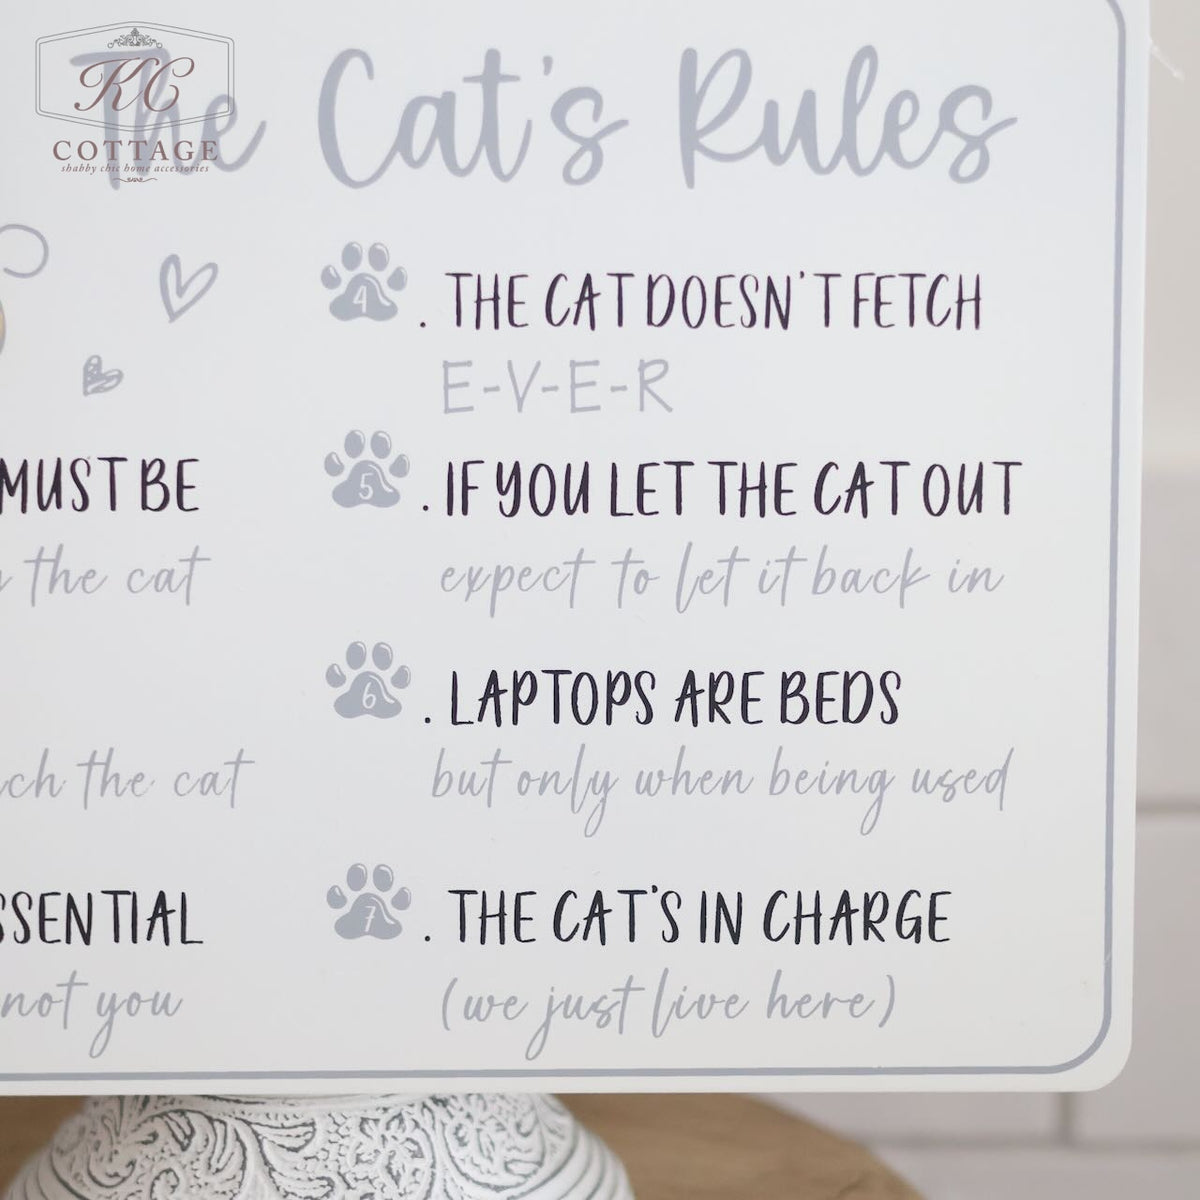 The Cat's Rules
KC
COTTAGE
shabby chic home accessories
MUST BE
the cat
the cat
ESSENTIAL
not you
4 . THE CAT DOESN'T FETCH
E-V-E-R
5 . IF YOU LET THE CAT OUT
expect to let it back in
6 . LAPTOPS ARE BEDS
but only when being used
7 . THE CAT'S IN CHARGE
(we just live here)